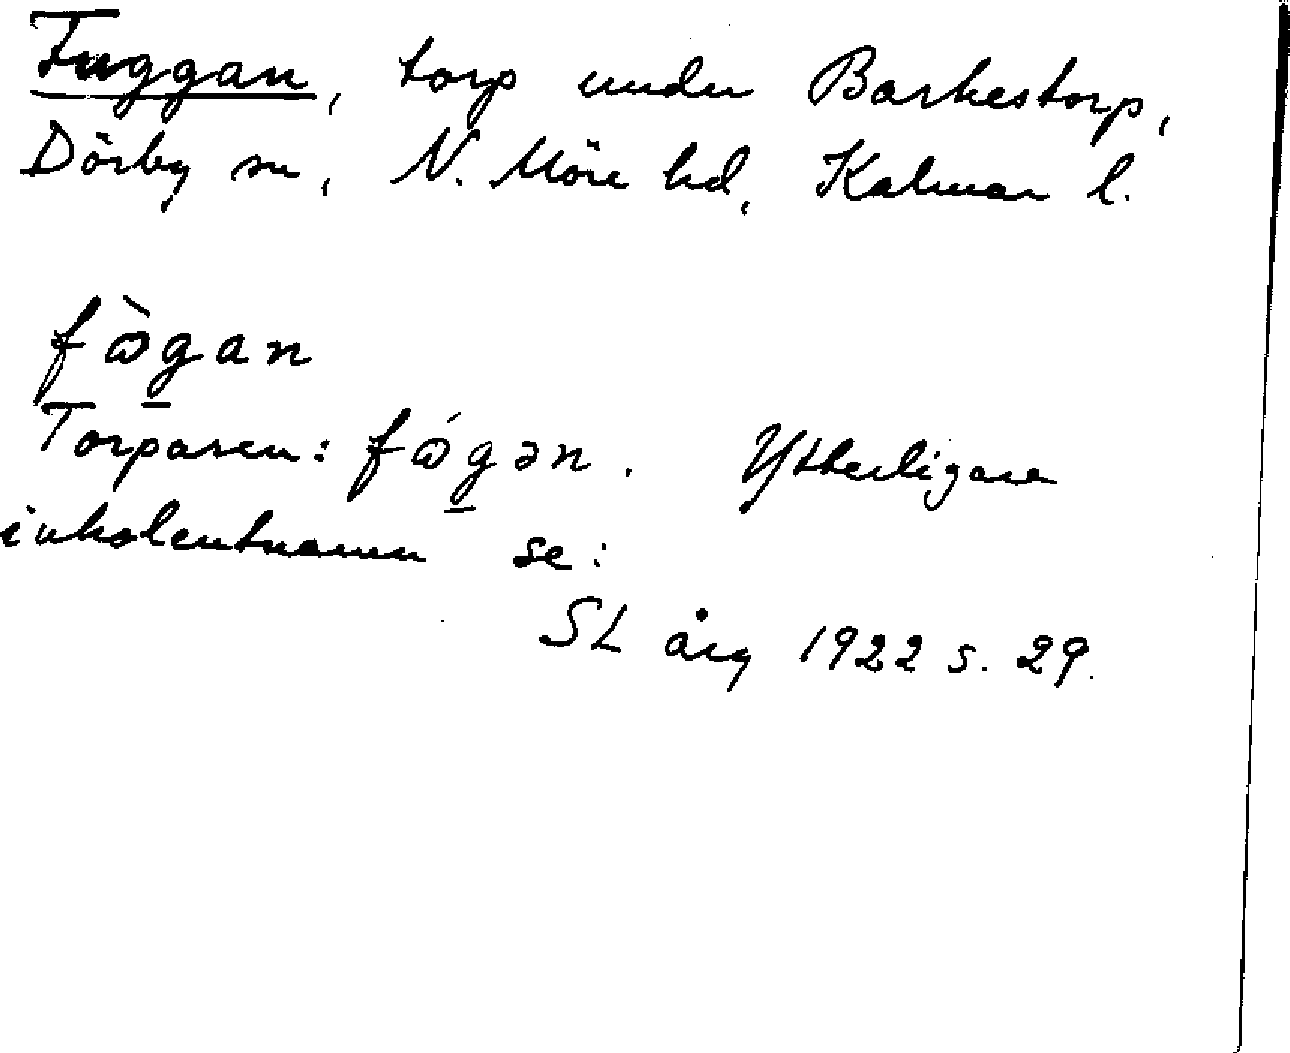 Fuggan, torp under Barkestorp,
Dörby sn, N. Möre hd, Kalmar l.
fɷ̀g̲an
Torparen: fɷ́g̲ən. Ytterligare
inkolentnamn se:
SL årg 1922 s. 29.